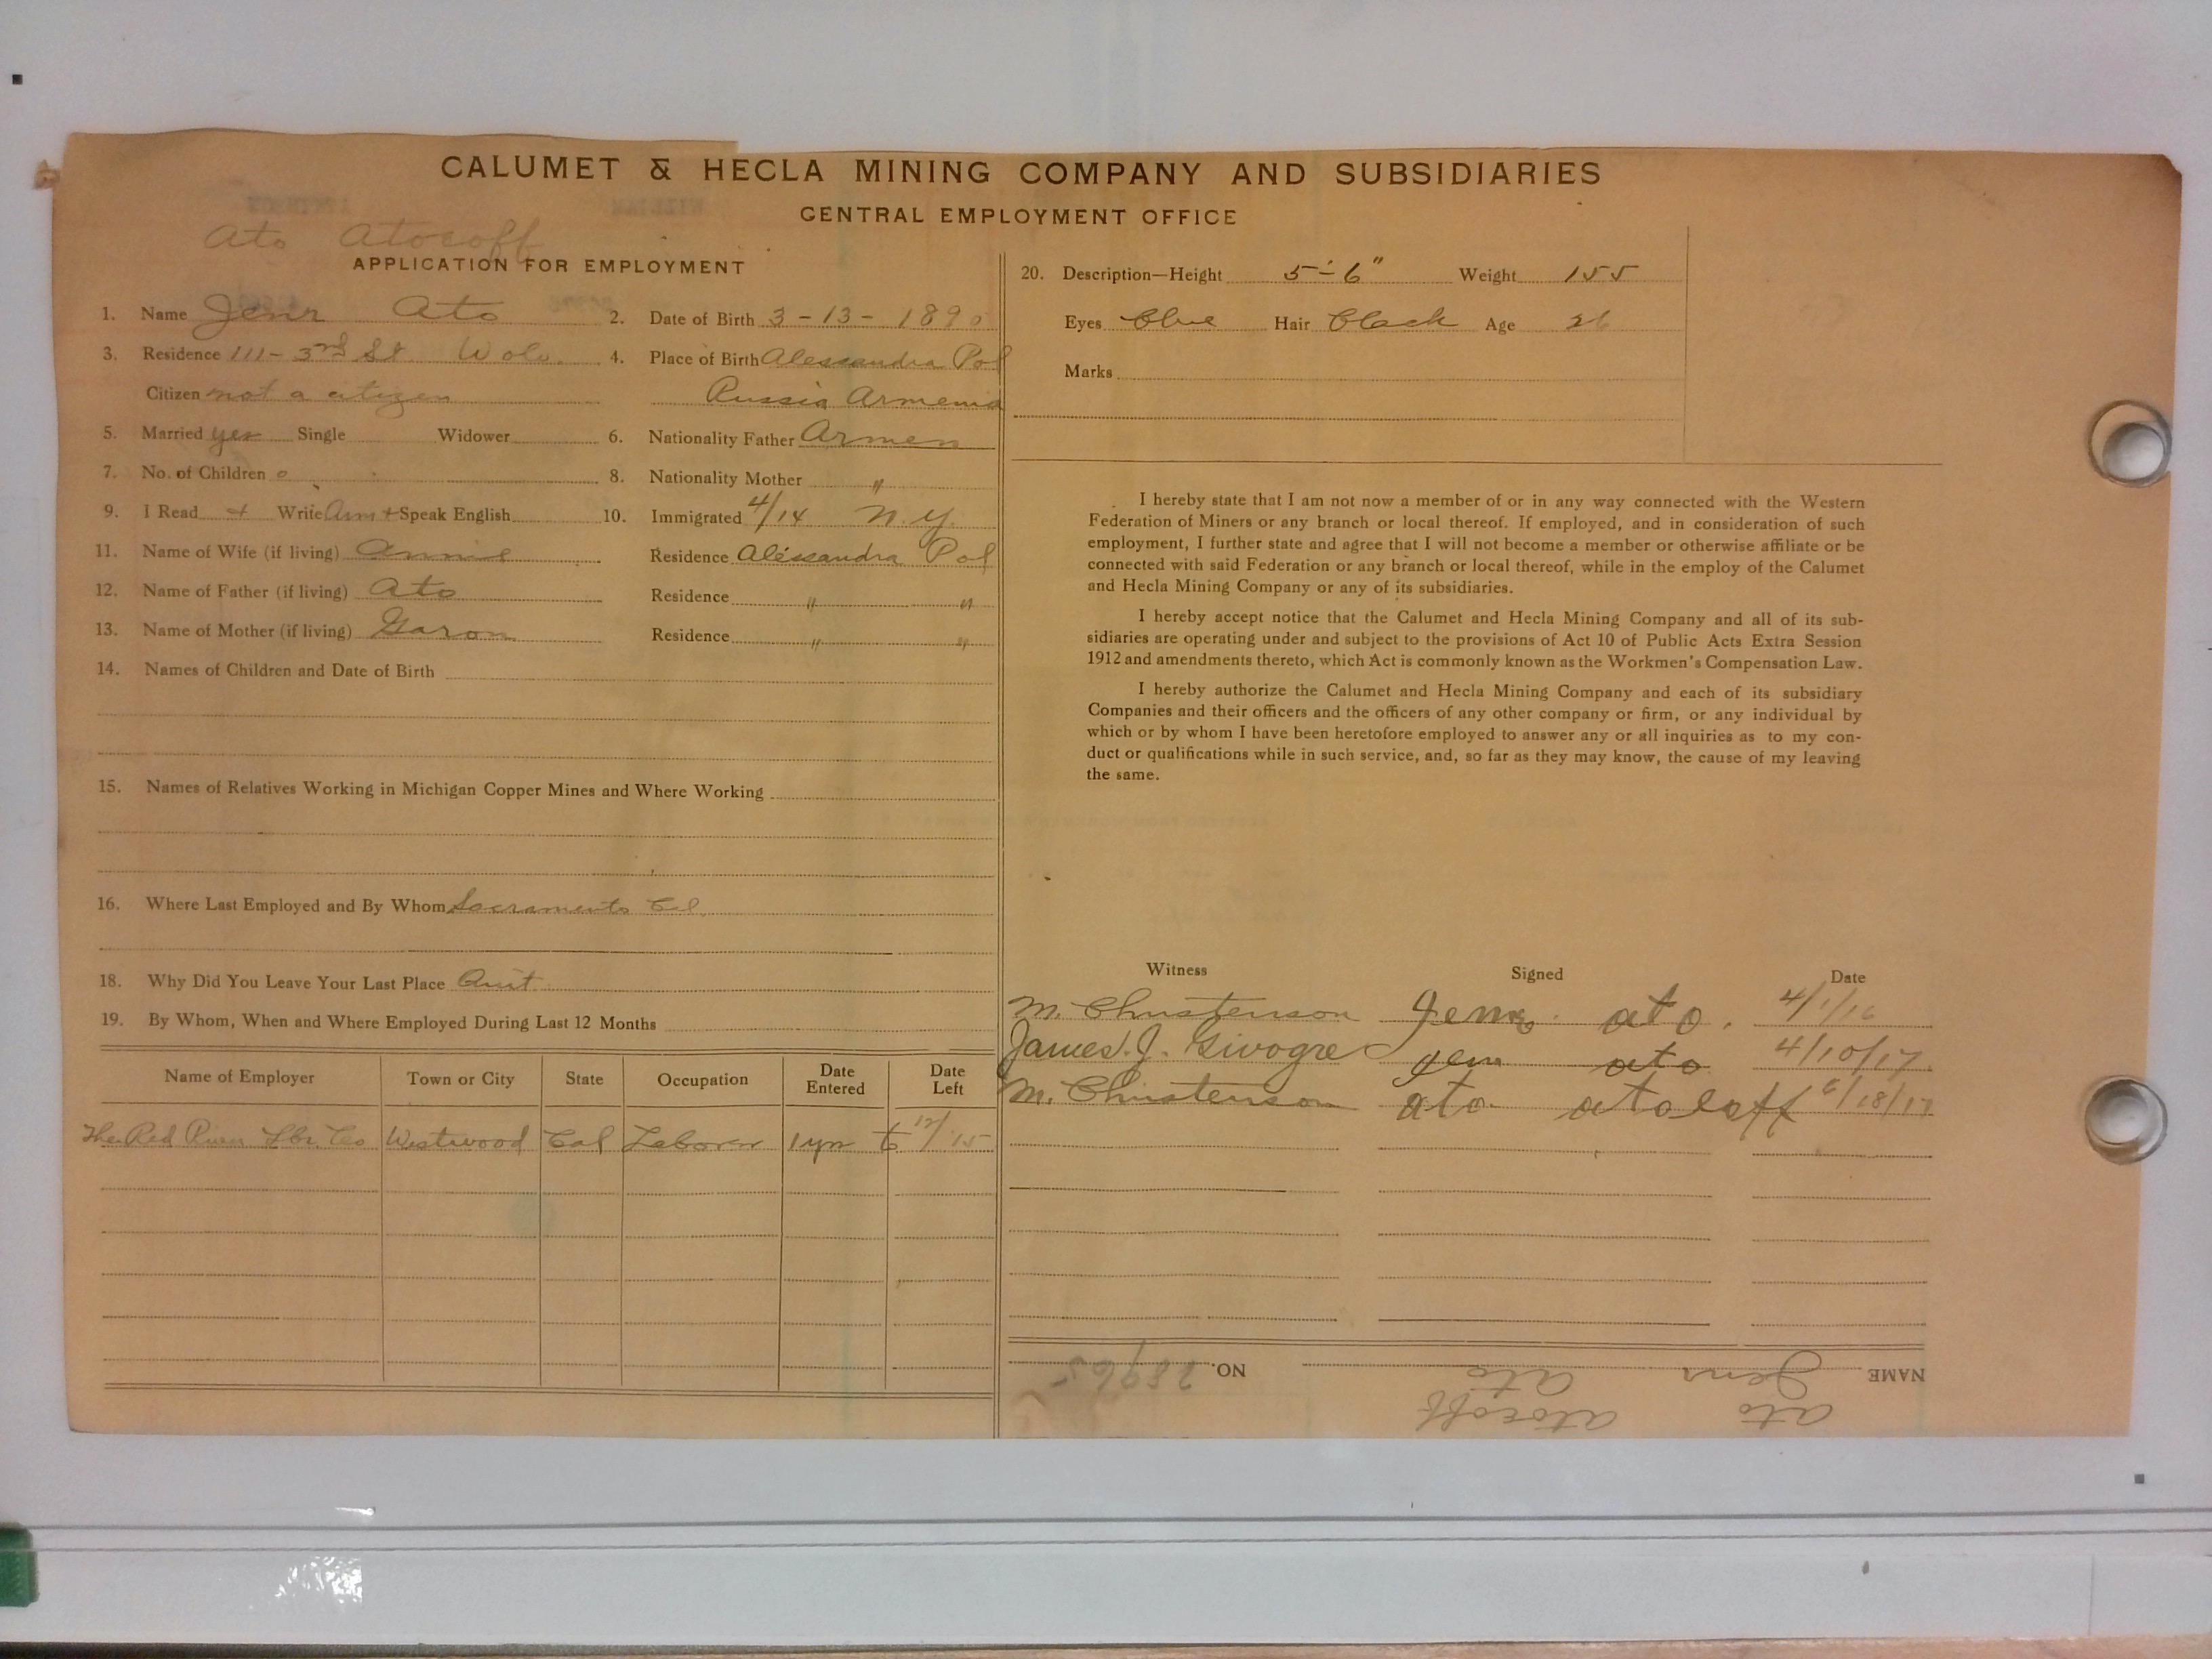 CALUMET & HECLA MINING COMPANY AND SUBSIDIARIES
CENTRAL EMPLOYMENT OFFICE
Ato Atocoff
APPLICATION FOR EMPLOYMENT
1. Name Jenr Ato
2. Date of Birth 3-13-1890
3. Residence 111-3rd St Wolv.
4. Place of Birth Alessandra Pol
Citizen not a citizen
Russia Armenia
5. Married yes Single Widower
6. Nationality Father Armen
7. No. of Children 0
8. Nationality Mother "
9. I Read + Write Arm + Speak English
10. Immigrated 4/14 N.Y.
11. Name of Wife (if living) Annie
Residence Alessandra Pol
12. Name of Father (if living) Ato
Residence " "
13. Name of Mother (if living) Garon
Residence " "
14. Names of Children and Date of Birth
15. Names of Relatives Working in Michigan Copper Mines and Where Working
16. Where Last Employed and By Whom Sacramento Cal
18. Why Did You Leave Your Last Place Quit
19. By Whom, When and Where Employed During Last 12 Months
Name of Employer Town or City State Occupation Date Entered Date Left
The Red River Lbr. Co Westwood Cal Laborer 1 yr to 12/15
20. Description—Height 5'-6" Weight 155
Eyes Blue Hair Black Age 26
Marks
I hereby state that I am not now a member of or in any way connected with the Western
Federation of Miners or any branch or local thereof. If employed, and in consideration of such
employment, I further state and agree that I will not become a member or otherwise affiliate or be
connected with said Federation or any branch or local thereof, while in the employ of the Calumet
and Hecla Mining Company or any of its subsidiaries.
I hereby accept notice that the Calumet and Hecla Mining Company and all of its sub-
sidiaries are operating under and subject to the provisions of Act 10 of Public Acts Extra Session
1912 and amendments thereto, which Act is commonly known as the Workmen's Compensation Law.
I hereby authorize the Calumet and Hecla Mining Company and each of its subsidiary
Companies and their officers and the officers of any other company or firm, or any individual by
which or by whom I have been heretofore employed to answer any or all inquiries as to my con-
duct or qualifications while in such service, and, so far as they may know, the cause of my leaving
the same.
Witness Signed Date
M. Christenson Jenr ato. 4/1/16
James. J. Givogre jenr ato 4/10/17
M. Christenson ato atoloff 6/18/17
NAME Jenr Ato NO. 28965
Ato Atocoff